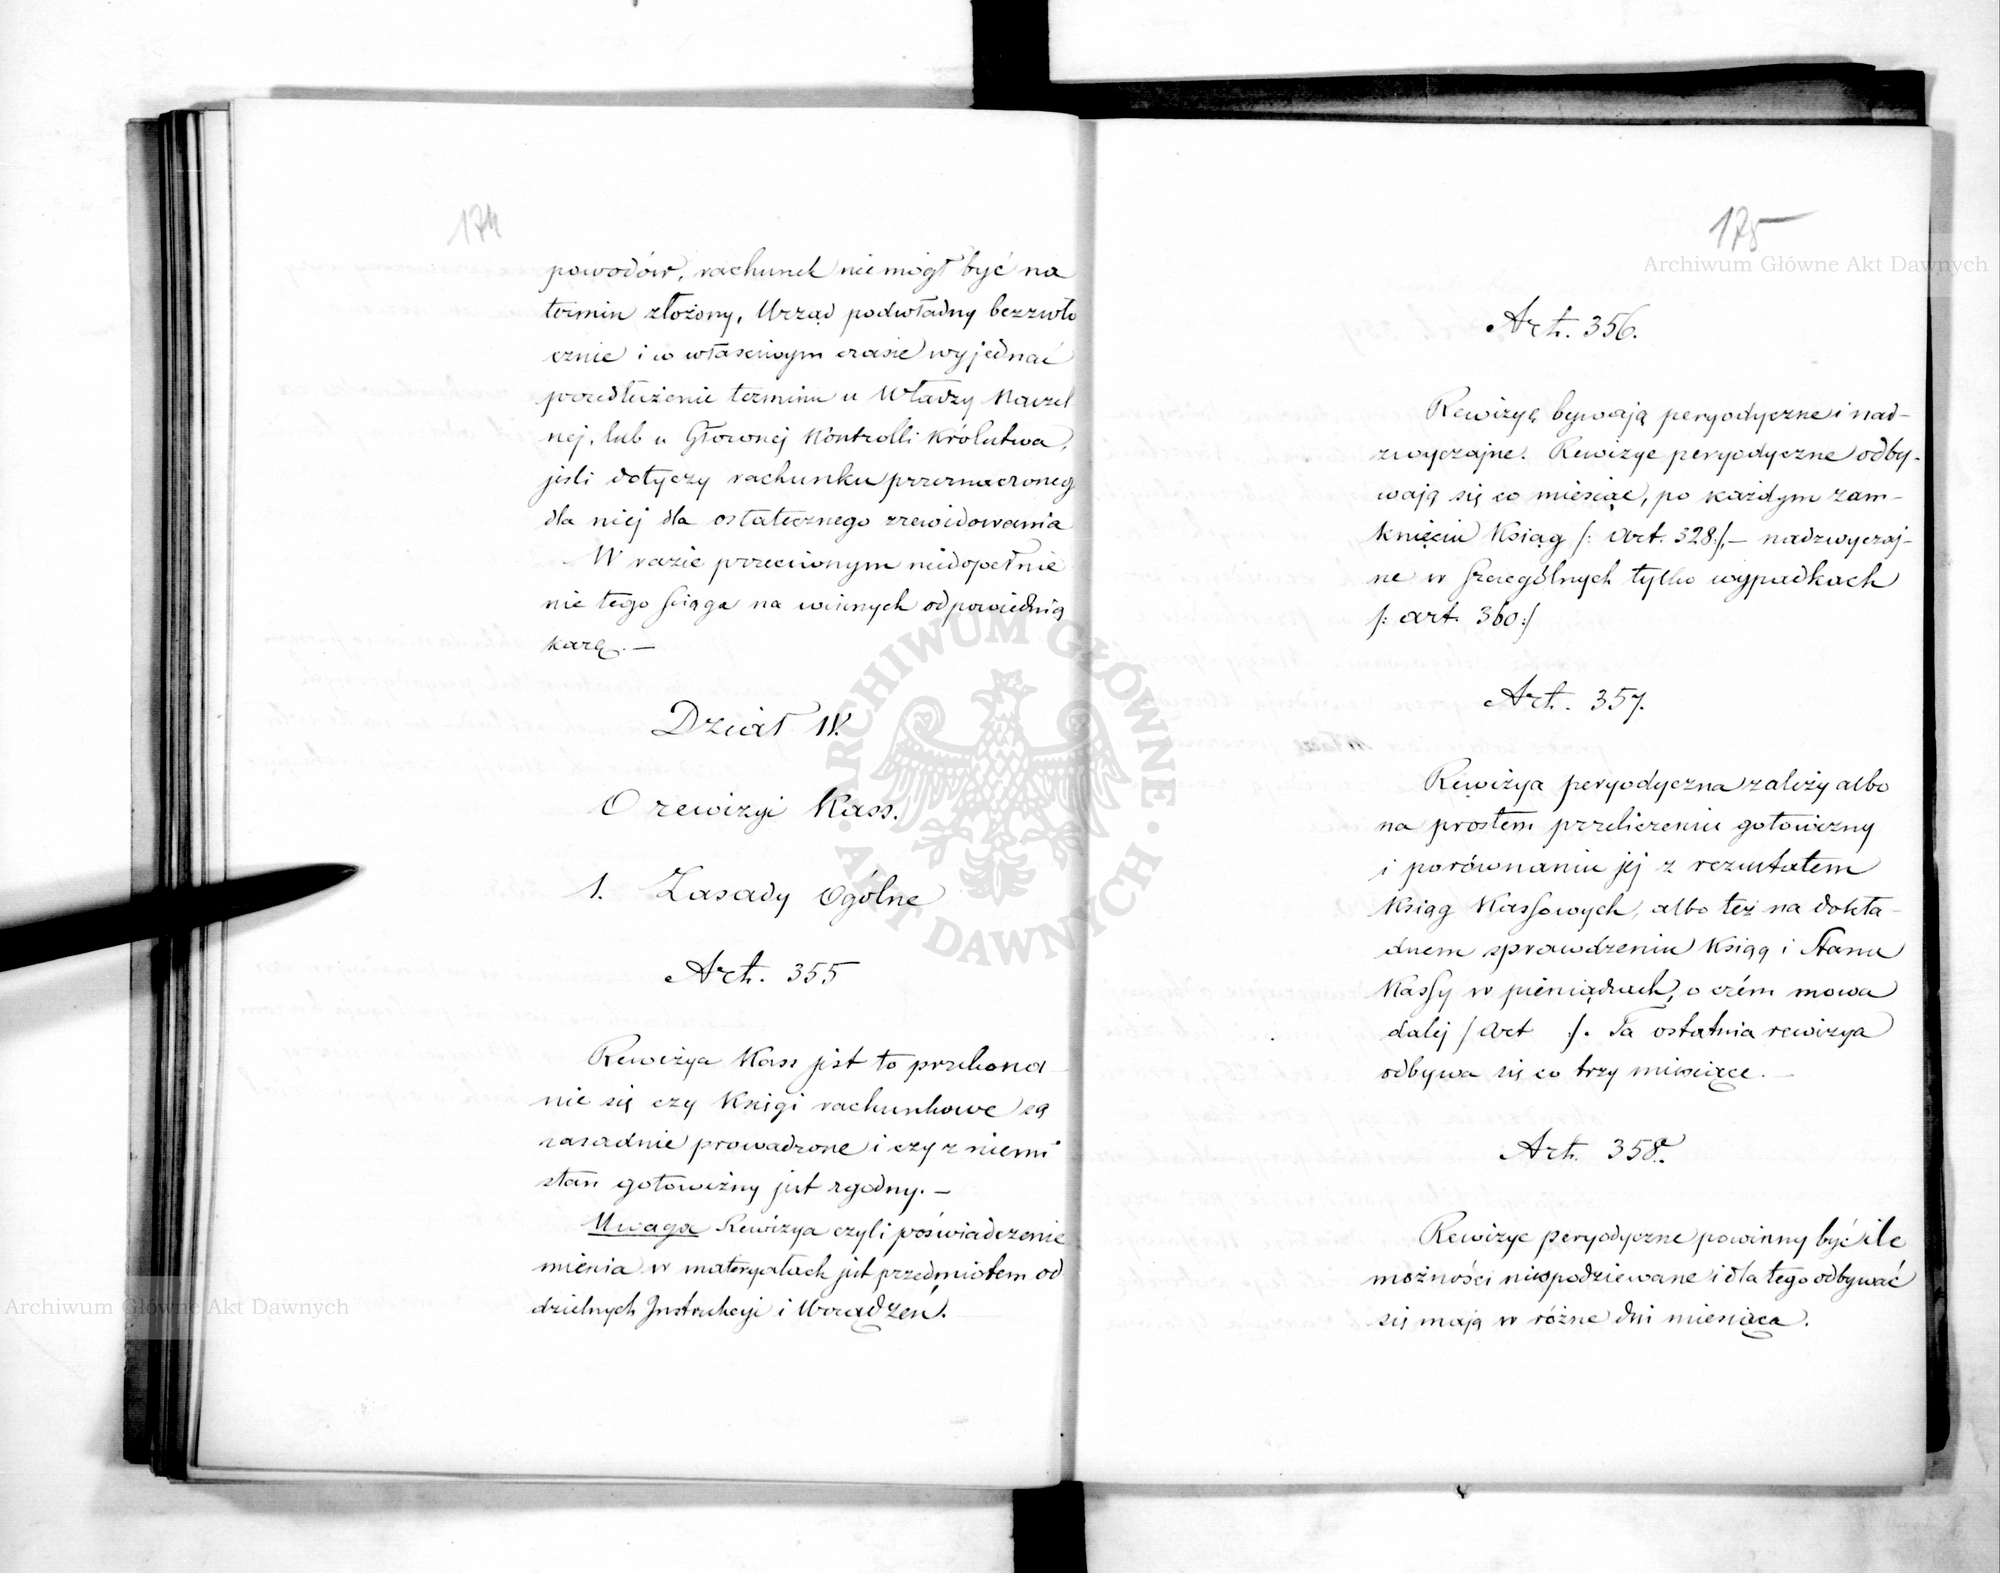 174
powodów, rachunek nie mógł być na
termin złożony, Urząd podwładny bezzwło
cznie i w właściwym czasie wyjednać
przedłużenie terminu u Władzy Naczel
nej, lub u Głównej Kontrolli Królestwa,
jeśli dotyczy rachunku przeznaczoneg
dla niej dla ostatecznego zrewidowania
W razie przeciwnym niedopełnie
nie tego sciąga na winnych odpowiednią
karę. —
Dział IV.
O rewizyi Kass.
1. Zasady Ogólne
Art. 355
Rewizya Kass jest to przekona
nie się czy Księgi rachunkowe są
zasadnie prowadzone i czy z niemi
stan gotowizny jest zgodny. —
Uwaga Rewizya czyli poświadczenie
mienia w materyałach jest przedmiotem od
dzielnych Instrukcyi i Urządzeń.
175
Art. 356.
Rewizye bywają peryodyczne i nad-
zwyczajne. Rewizye peryodyczne odby-
wają się co miesiąc, po każdym zam-
knięciu Ksiąg /: art. 328 :/, — nadzwyczaj-
ne w szczególnych tylko wypadkach
/: art. 360 :/
Art. 357.
Rewizya peryodyczna zależy albo
na prostem przeliczeniu gotowizny
i porównaniu jej z rezultatem
Ksiąg Kassowych, albo też na dokła-
dnem sprawdzeniu Ksiąg i Stanu
Kassy w pieniądzach, o czém mowa
dalej / art :/. Ta ostatnia rewizya
odbywa się co trzy miesiące. —
Art. 358.
Rewizye peryodyczne powinny być ile
możności niespodziewane i dla tego odbywać
się mają w różne dni miesiąca.
Archiwum Główne Akt Dawnych
Archiwum Główne Akt Dawnych
ARCHIWUM GŁÓWNE
AKT DAWNYCH